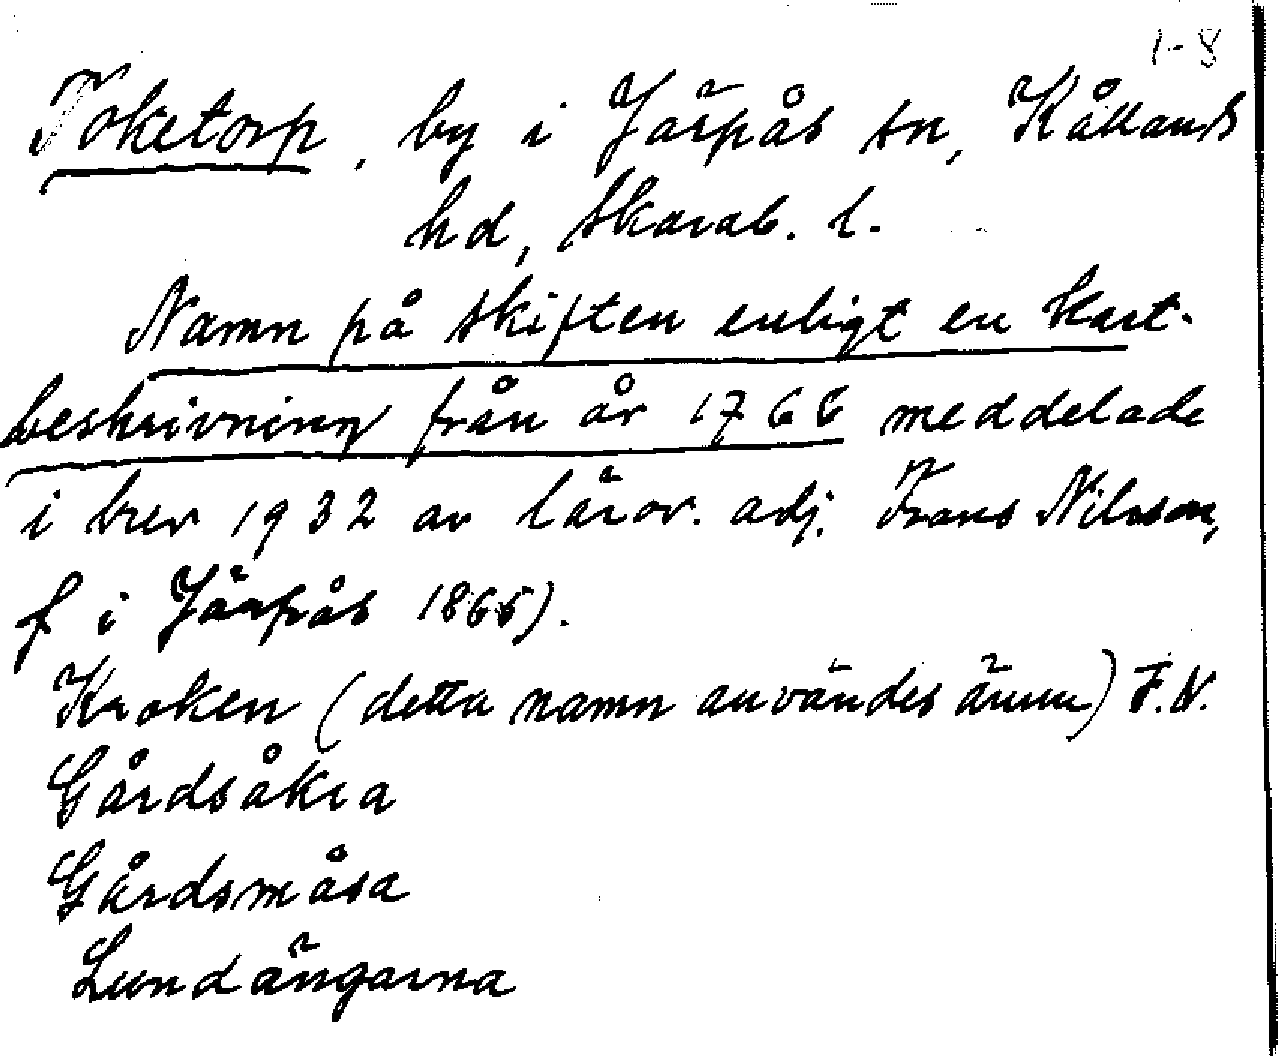 1-8
Toketorp, by i Järpås sn, Kållands
hd, Skarab. l.
Namn på skiften enligt en kart-
beskrivning från år 1766 meddelade
i brev 1932 av lärov. adj. Frans Nilsson,
f i Järpås 1865).
Kroken (detta namn användes ännu) F.N.
Gårdsåkra
Gårdsmåsa
Lundängarna